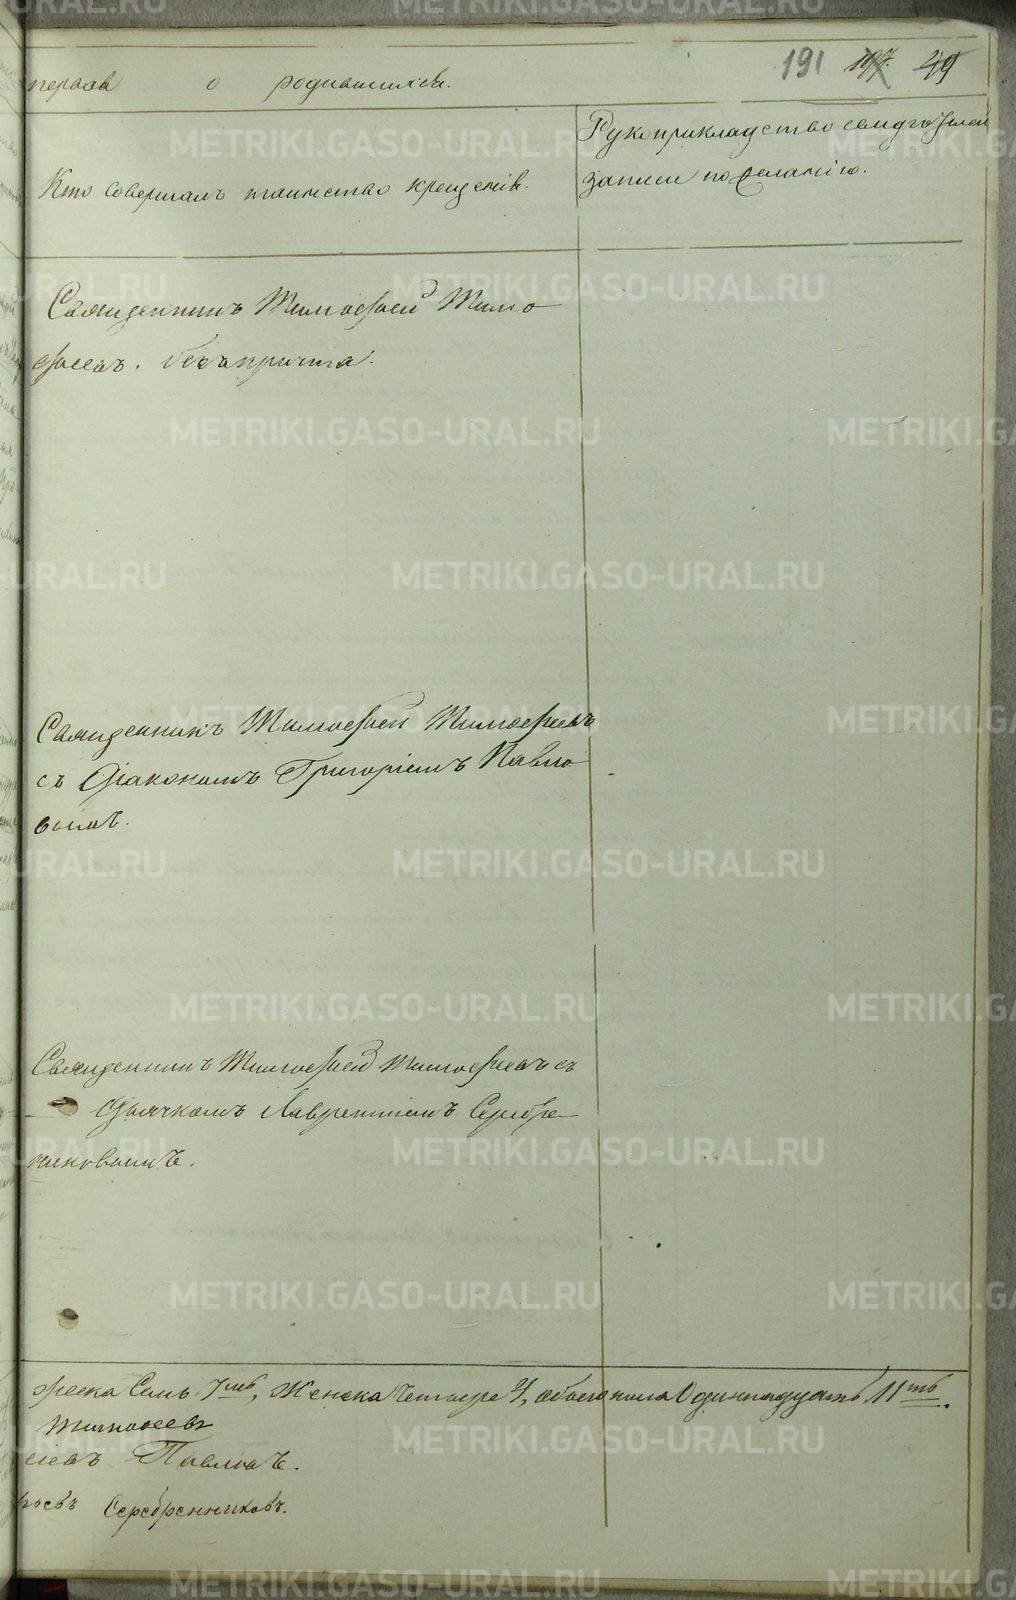 191 197. 49
первая о родившихся.
Кто совершалъ таинство крещенія.
Рукоприкладство свидѣтелей
записи по желанію.
Священникъ Тимофей Тимо
феевъ. безъ причта.
Священникъ Тимофей Тимофеевъ
съ Діакономъ Григоріемъ Павло
вымъ.
Священникъ Тимофей Тимофеевъ съ
Дьячкомъ Лаврентіемъ Серебре
никовымъ.
жеска Семь 7мь, Женска Четыре 4, обоего пола Одинадцать 11ть.
Тимофеевъ
Павловъ.
Серебренниковъ.
METRIKI.GASO-URAL.RU